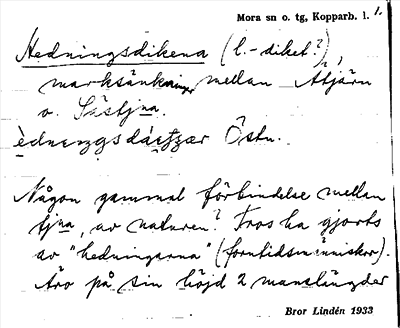 Mora sn o. tg, Kopparb. l. 1.
Hedningsdikena (l. -diket?),
marksänkningar mellan Åtjärn
o. Sästjna.
Östn.
Någon gammal förbindelse mellan
tjna, av naturen? Tros ha gjorts
av "hedningarna" (forntidsmänniskor).
Äro på sin höjd 2 manslängder
Bror Lindén 1933